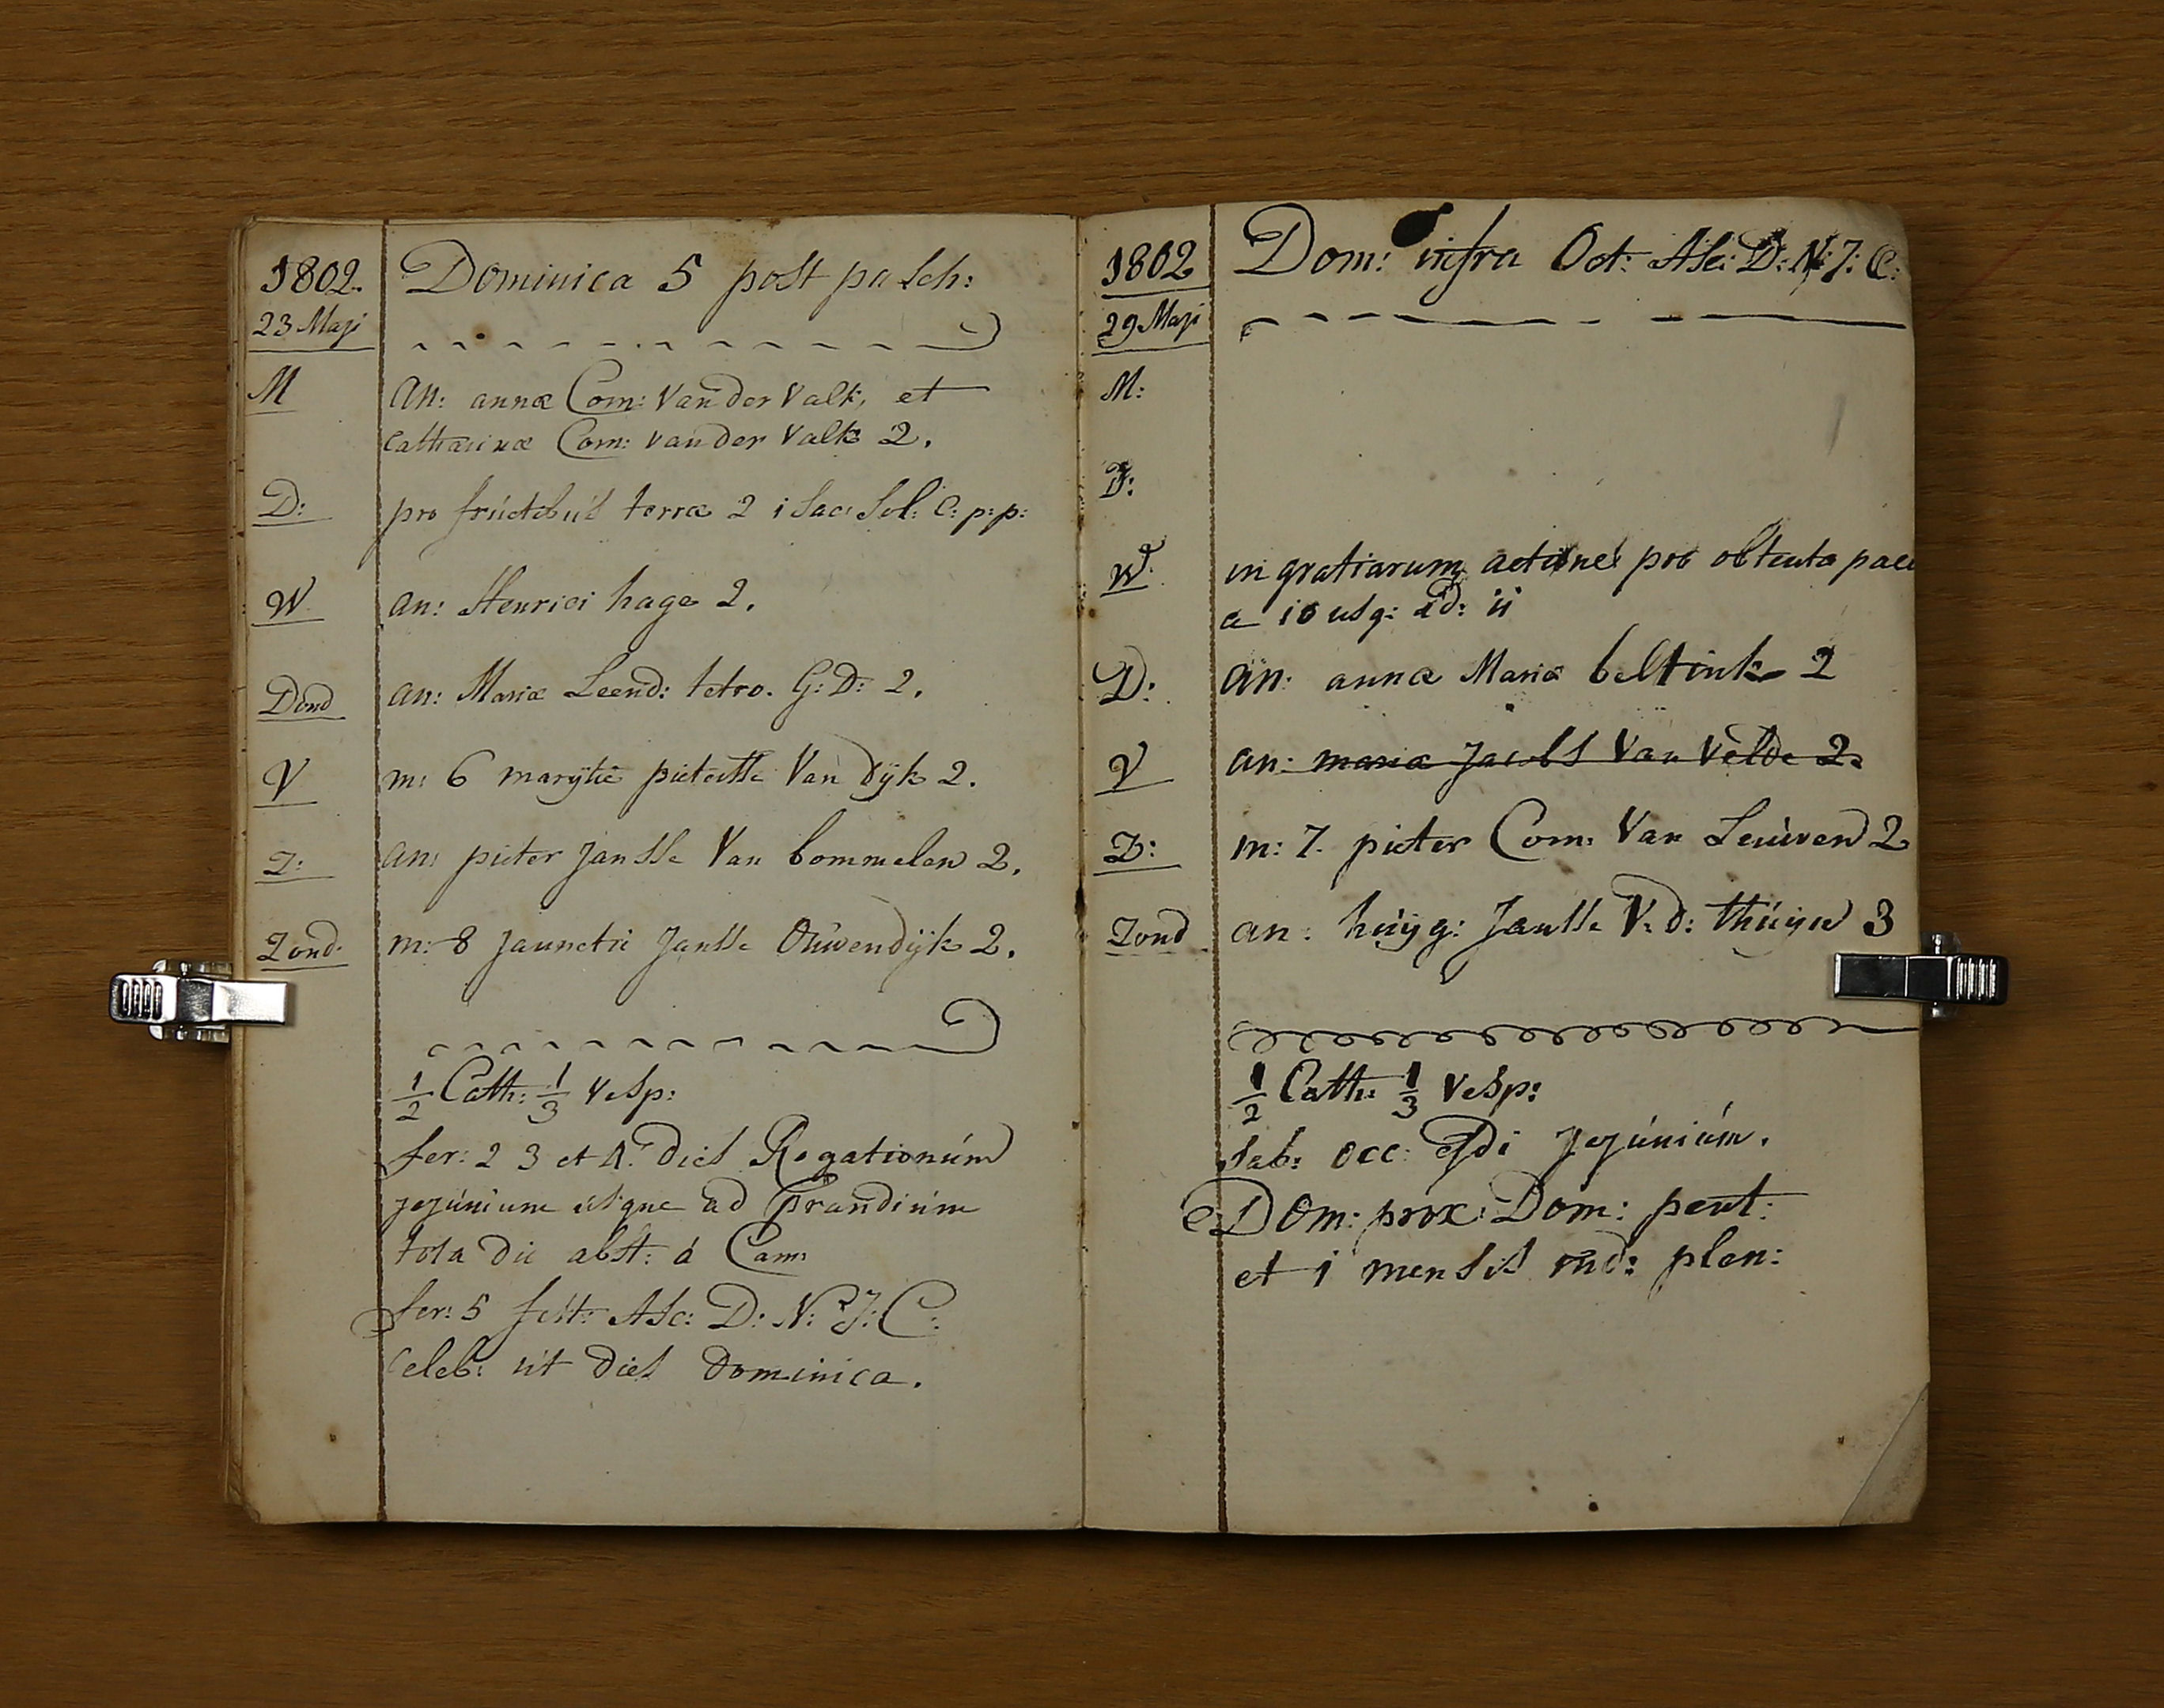 1802.
23 Maji
Dominica 5 post pasch:
M
An: annæ Corn: Van der Valk, et
Catharinæ Corn: van der Valk 2.
D:
pro fructibus terræ 2 i Sac: Sol: C: p: p:
W
an: Henrici hage 2.
Dond
an: Mariæ Leend: tetro. G: D: 2.
V
m: 6 marijtie pieterse Van Dijk 2.
Z:
an: pieter Jansse Van bommelen 2.
Zond:
m: 8 Jannetie Jansse Ouwendijk 2.
1/2 Cath: 1/3 Vesp:
fer: 2 3 et 4. dies Rogationum
jejunium usque ad prandium
tota die abst: á Carn:
fer: 5 fest: Asc: D: N: J: C:
Celeb: ut dies dominica.
1802
29 Maji
Dom: infra Oct: Asc: D: N: J: C:
M:
D:
W:
in gratiarum actione pro obtenta pace
a 10 usq: ad: ii
D:
an: annæ Mariæ beltink 2
V
an: mariæ Jacobs Van Velde 2.
Z:
m: 7. pieter Corn: Van Leuwen 2
Zond
an: huijg: Jansse V: d: thuijn 3
1/2 Cath: 1/3 Vesp:
sab: occ: jejunium.
Dom: prox: Dom: pent:
et i mensis ind: plen: